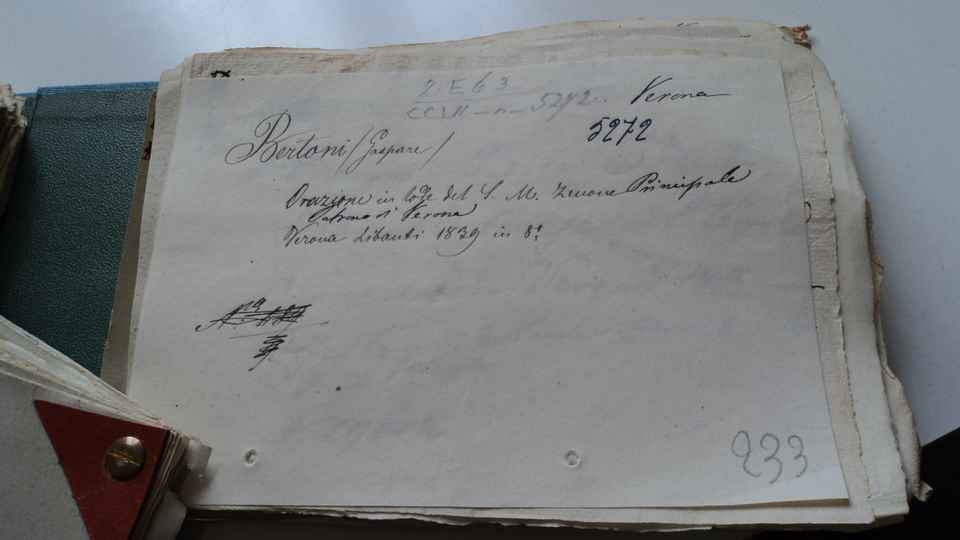 2. E 6 3
CCVII - n - 5272. Verona
5272
Bertoni (Gaspare)
Orazione in lode del S. M. Zenone Principale
Patrono di Verona
Verona Libanti 1839 in 8.°
233